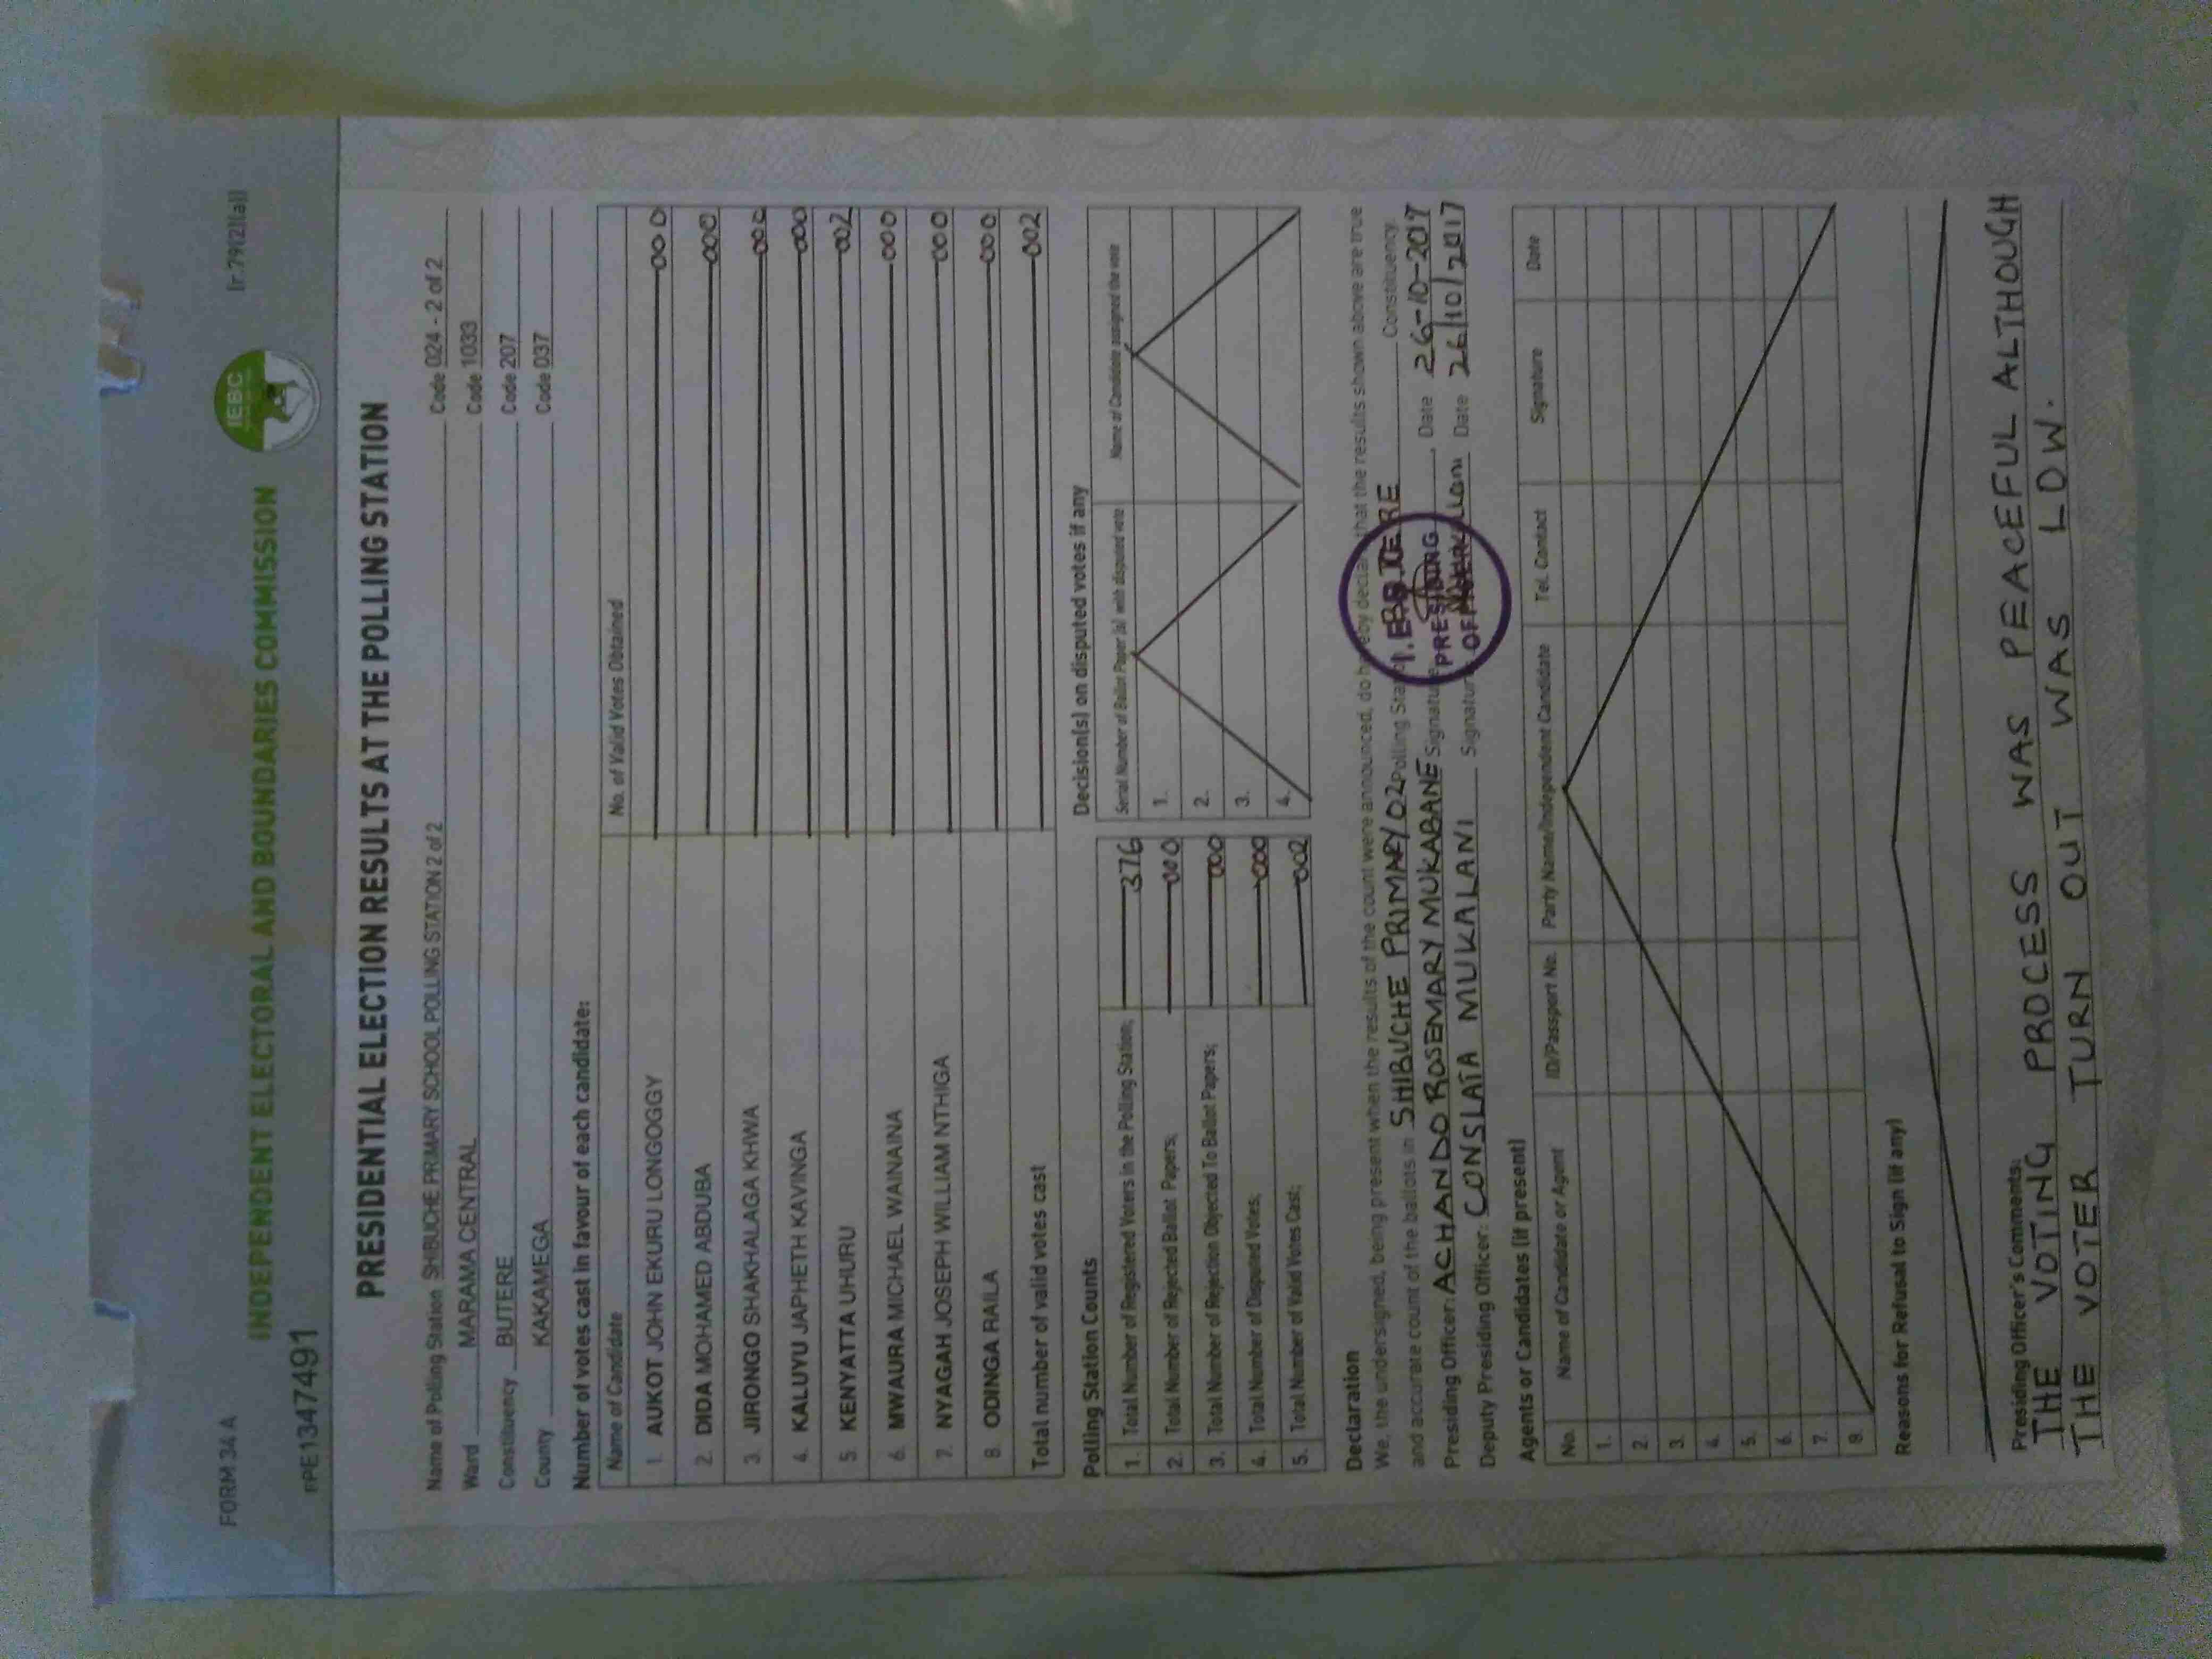 FORM 34 A
(r.79(2)(a))
IEBC
INDEPENDENT ELECTORAL AND BOUNDARIES COMMISSION
PE1347491
PRESIDENTIAL ELECTION RESULTS AT THE POLLING STATION
Name of Polling Station SHIBUCHE PRIMARY SCHOOL POLLING STATION 2 of 2 Code 024 - 2 of 2
Ward MARAMA CENTRAL Code 1033
Constituency BUTERE Code 207
County KAKAMEGA Code 037
Number of votes cast in favour of each candidate:
Name of Candidate No. of Valid Votes Obtained
1. AUKOT JOHN EKURU LONGOGGY 000
2. DIDA MOHAMED ABDUBA 000
3. JIRONGO SHAKHALAGA KHWA 000
4. KALUYU JAPHETH KAVINGA 000
5. KENYATTA UHURU 002
6. MWAURA MICHAEL WAINAINA 000
7. NYAGAH JOSEPH WILLIAM NTHIGA 000
8. ODINGA RAILA 000
Total number of valid votes cast 002
Polling Station Counts
1. Total Number of Registered Voters in the Polling Station; 376
2. Total Number of Rejected Ballot Papers; 000
3. Total Number of Rejection Objected To Ballot Papers; 000
4. Total Number of Disputed Votes; 000
5. Total Number of Valid Votes Cast; 002
Decision(s) on disputed votes if any
Serial Number of Ballot Paper (s) with disputed vote Name of Candidate assigned the vote
1.
2.
3.
4.
Declaration
We, the undersigned, being present when the results of the count were announced, do hereby declare that the results shown above are true
and accurate count of the ballots in SHIBUCHE PRIMARY 02 Polling Station, BUTERE Constituency.
Presiding Officer: ACHANDO ROSEMARY MUKABANE Signature Date 26-10-2017
Deputy Presiding Officer: CONSLATA MUKALANI Signature Date 26/10/2017
PRESIDING
Agents or Candidates (if present)
No. Name of Candidate or Agent ID/Passport No. Party Name/Independent Candidate Tel. Contact Signature Date
1.
2.
3.
4.
5.
6.
7.
8.
Reasons for Refusal to Sign (if any)
Presiding Officer's Comments:
THE VOTING PROCESS WAS PEACEFUL ALTHOUGH
THE VOTER TURN OUT WAS LOW.